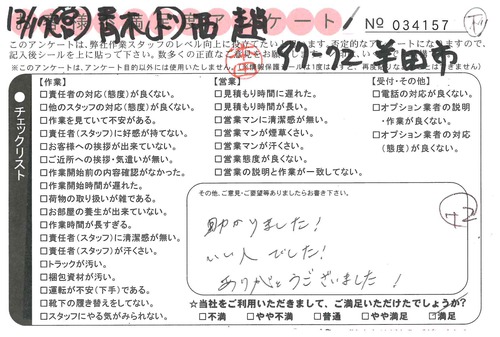 アンケート
№ 034157
半田市
このアンケートは、弊社作業スタッフのレベル向上に役立てたい
記入後シールを上に貼って下さい。
※このアンケートは、アンケート目的以外には使用いたしません。
チェックリスト
【作業】
□責任者の対応(態度)が良くない。
□他のスタッフの対応(態度)が良くない。
□作業を見ていて不安がある。
□責任者(スタッフ)に好感が持てない。
□お客様への挨拶が出来ていない。
□ご近所への挨拶・気遣いが無い。
□作業開始前の内容確認がなかった。
□作業開始時間が遅れた。
□荷物の取り扱いが雑である。
□お部屋の養生が出来ていない。
□作業時間が長すぎる。
□責任者(スタッフ)に清潔感が無い。
□責任者(スタッフ)が汗くさい。
□トラックが汚い。
□梱包資材が汚い。
□運転が不安(下手)である。
□靴下の履き替えをしていない。
□スタッフにやる気がみられない。
【営業】
□見積もり時間に遅れた。
□見積もり時間が長い。
□営業マンに清潔感が無い。
□営業マンが煙草くさい。
□営業マンが汗くさい。
□営業態度が良くない。
□営業の説明と作業が一致してない。
【受付・その他】
□電話の対応が良くない。
□オプション業者の説明
・作業が良くない。
□オプション業者の対応
(態度)が良くない。
その他、ご意見・ご要望等ありましたらお書き下さい。
助かりました!
いい人でした!
ありがとうございました!
+2
☆当社をご利用いただきまして、ご満足いただけたでしょうか?
□不満 □やや不満 □普通 □やや満足 ☑満足